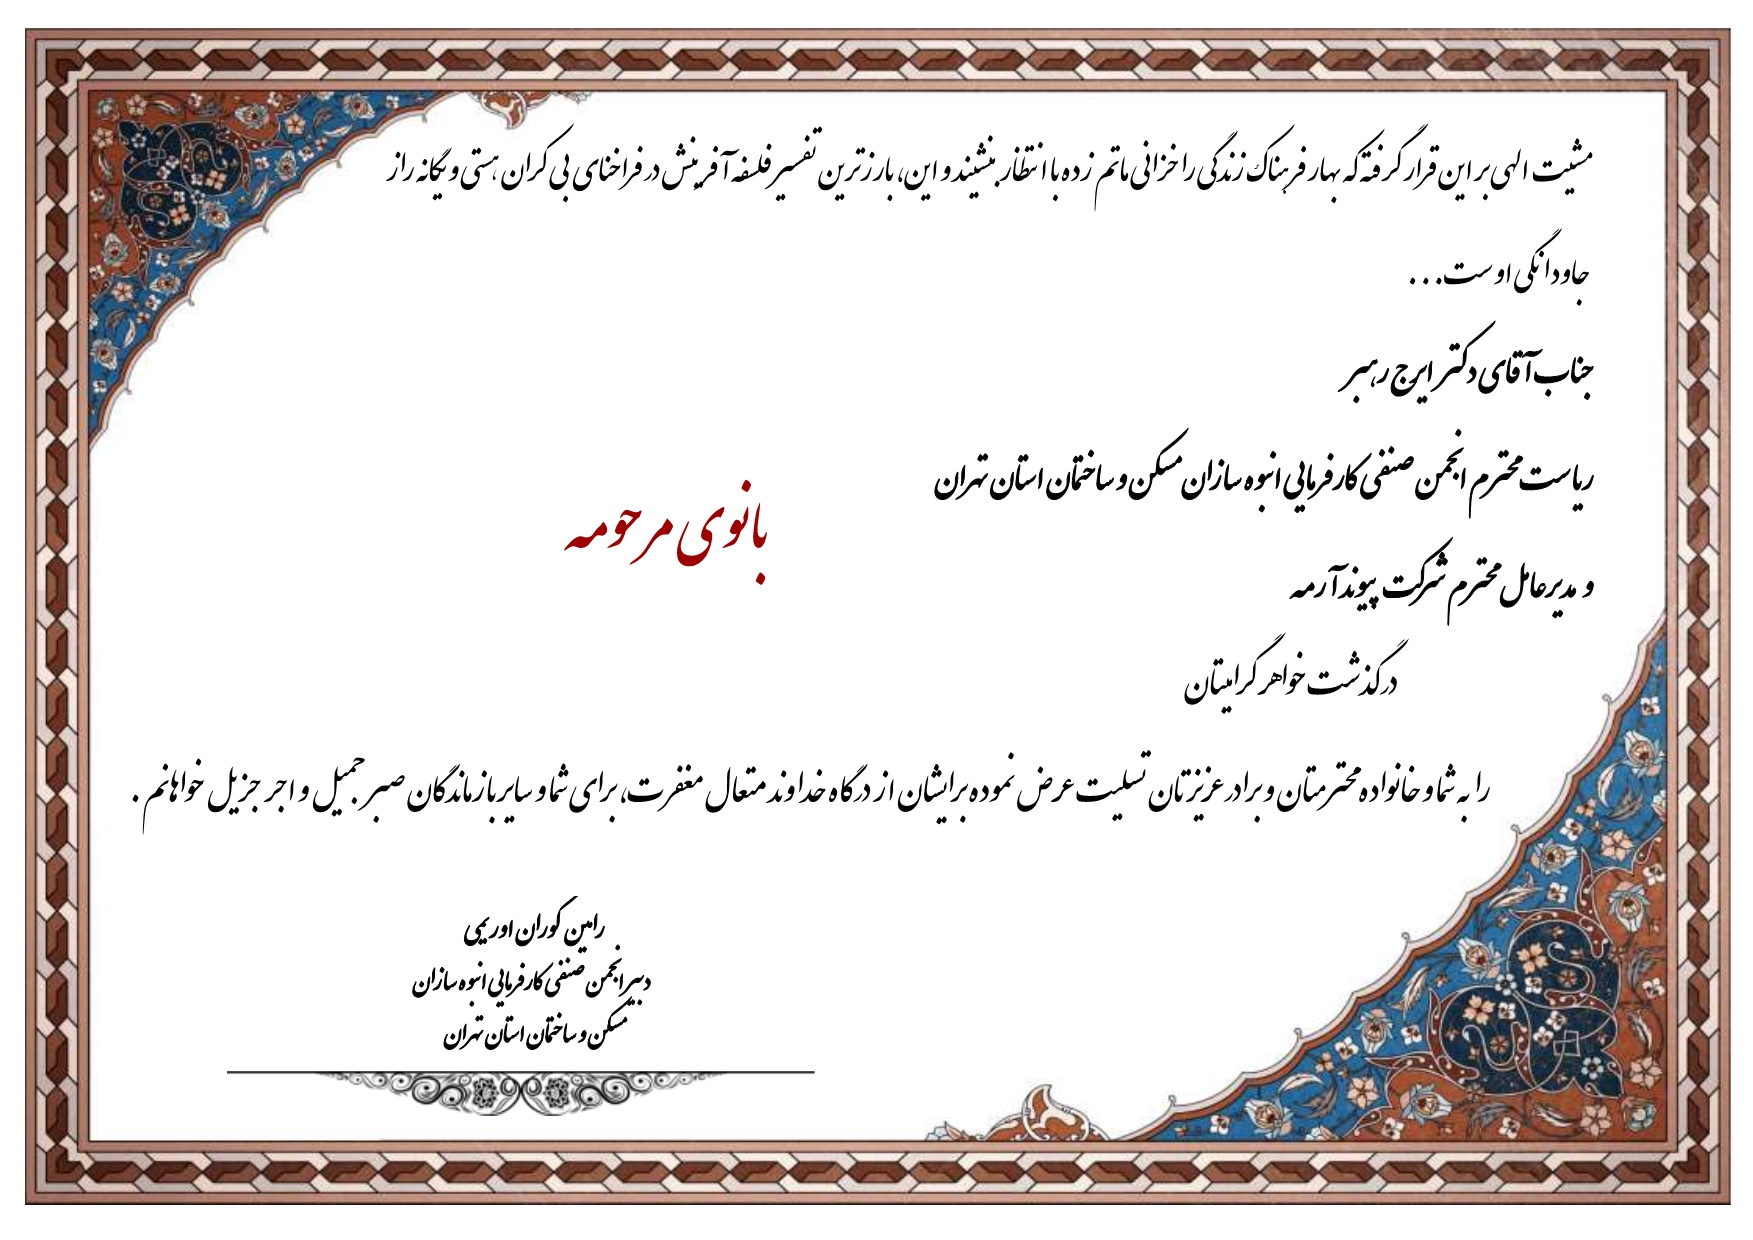 مشیت الهی بر این قرار گرفته که بهار فرحناک زندگی را خزانی ماتم زده با انتظار بنشیند و این، بارزترین تفسیر فلسفه آفرینش در فراخنای بی کران هستی و یگانه راز
جاودانگی اوست...
جناب آقای دکتر ایرج رهبر
ریاست محترم انجمن صنفی کارفرمایی انبوه سازان مسکن و ساختمان استان تهران
بانوی مرحومه
و مدیرعامل محترم شرکت پیوند آرمه
درگذشت خواهر گرامیتان
را به شما و خانواده محترمتان و برادر عزیزتان تسلیت عرض نموده برایشان از درگاه خداوند متعال مغفرت، برای شما و سایر بازماندگان صبر جمیل و اجر جزیل خواهانم .
رامین گوران اوریمی
دبیر انجمن صنفی کارفرمایی انبوه سازان
مسکن و ساختمان استان تهران